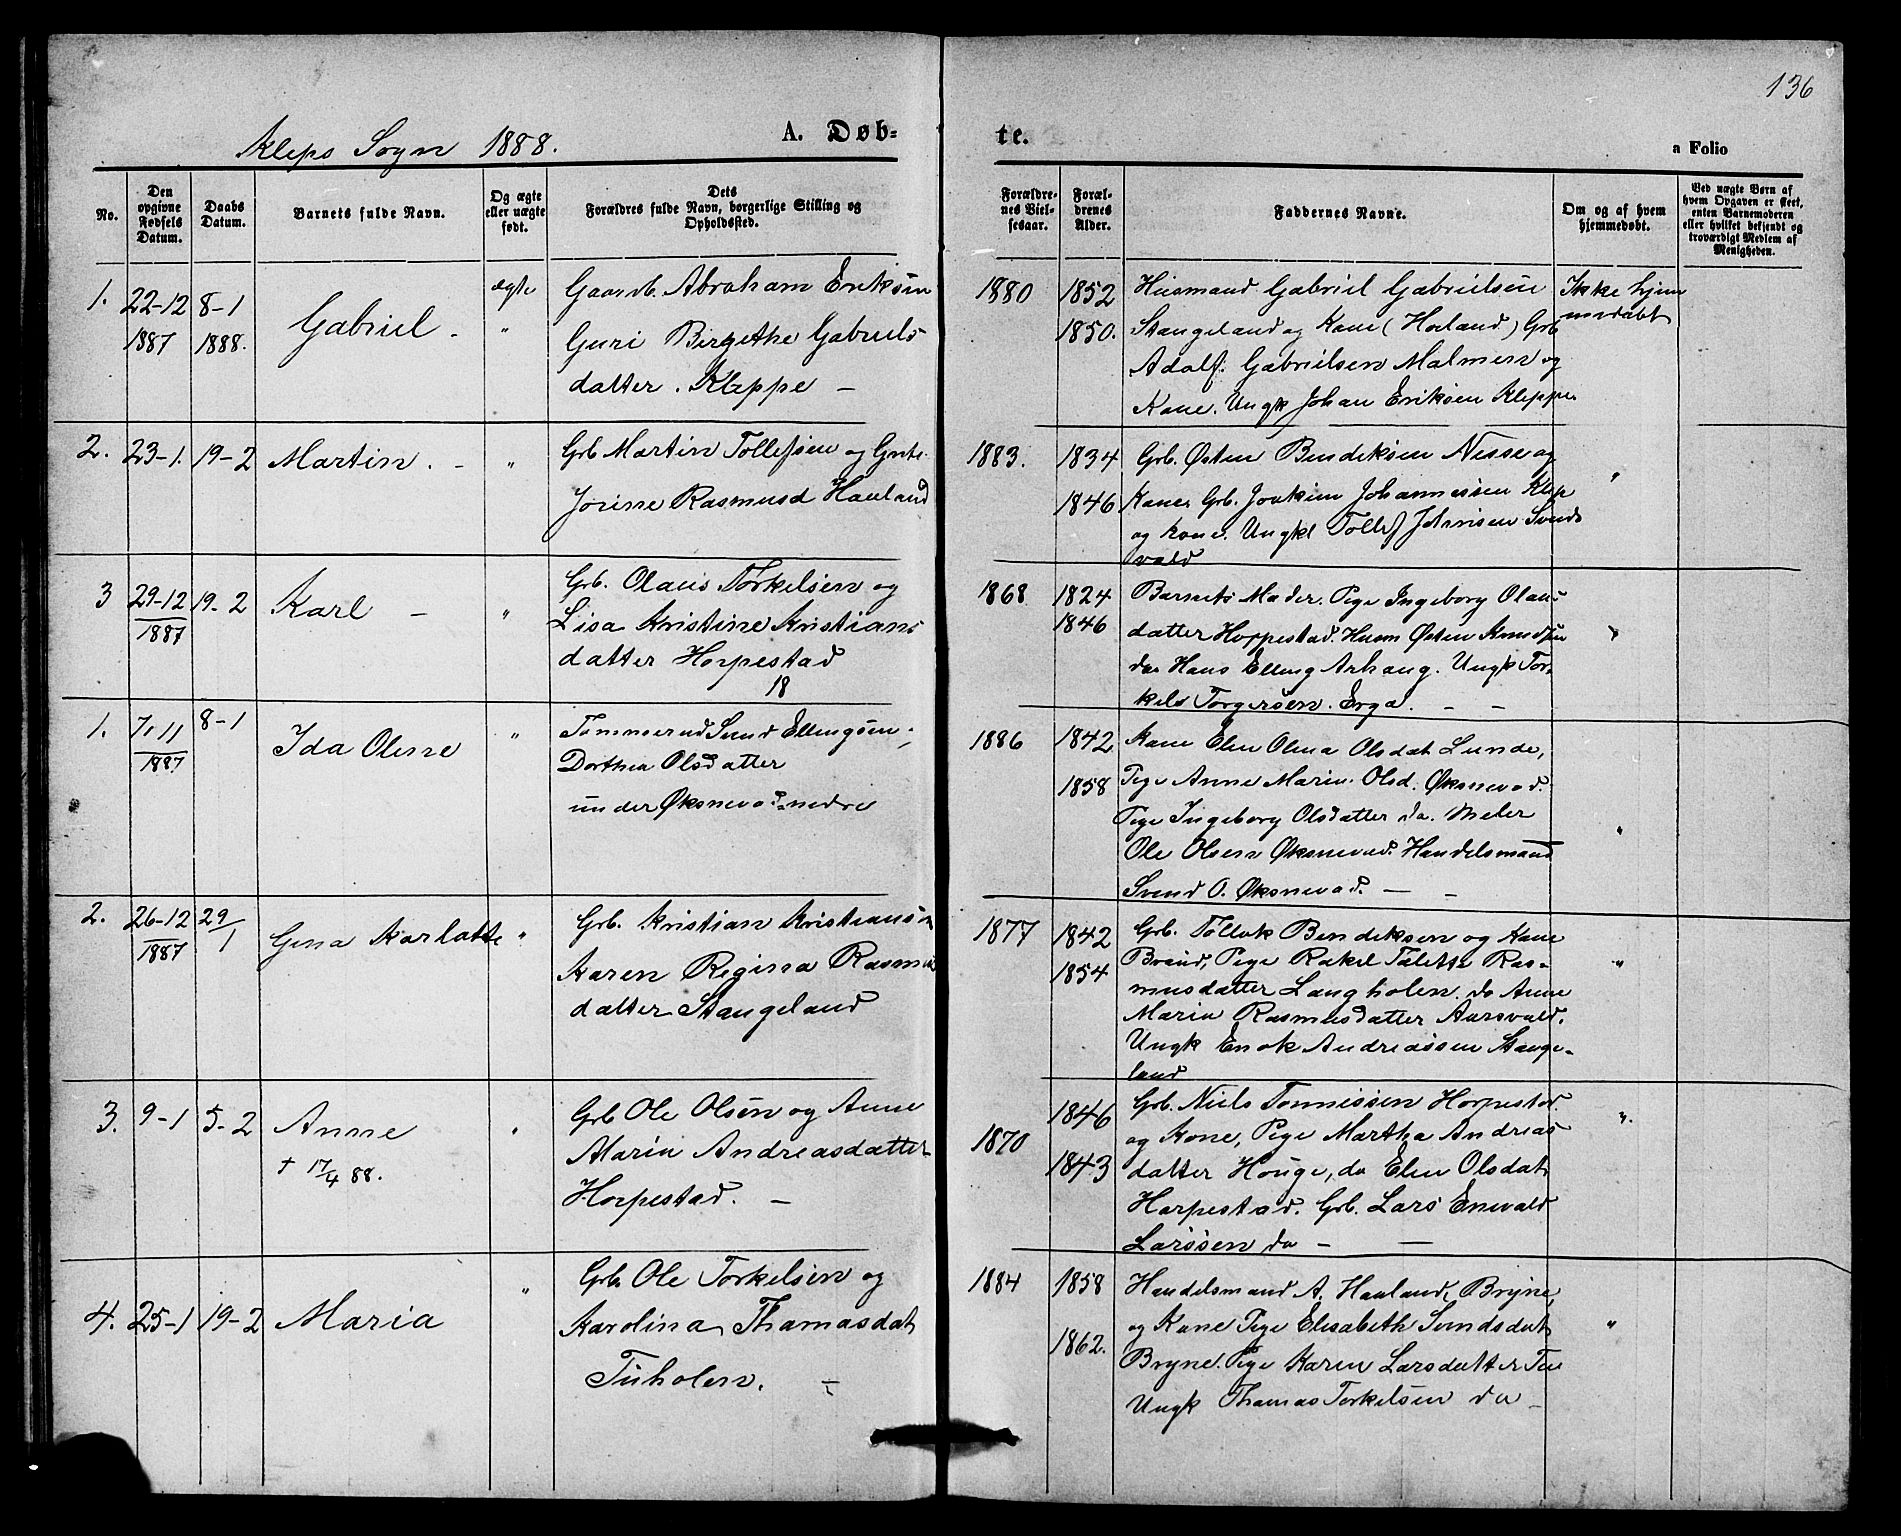 136
Kleps Sogn 1888.
A. Døb-
te.
a Folio
No.
Den opgivne Fødsels Datum.
Daabs Datum.
Barnets fulde Navn.
Og ægte eller uægte født.
Dets Forældres fulde Navn, borgerlige Stilling og Opholdssted.
Forældre-nes Viel-sesaar.
Foræl-drenes Alder.
Faddernes Navne.
Om og af hvem hjemmedøbt.
Ved uægte Børn af hvem Opgaven er skeet, enten Barnemoderen eller hvilket bekjendt og troværdigt Medlem af Menigheden.
1.
22-12
1887
8-1
1888.
Gabriel -
ægte
"
Gaardb. Abraham Eriksen
Guri Birgithe Gabriels
datter. Kleppe -
1880
1852
1850.
Husmand Gabriel Gabrielsen
Stangeland og Kone (Hoiland) Grb
Adolf Gabrielsen Malmen og
Kone. Ungk Johan Eriksen Kleppe.
Ikke hjem
medøbt
2.
23-1.
19-2
Martin. -
"
Grb Martin Tollefsen og
Jorine Rasmusd Hauland
1883.
1834
1846
Grb. Østen Bendiksen Nesse og
Kone Grb. Joakim Johannessen Klep
og kone. Ungkl Tollef Svends
vald
"
3
29-12
1887
19-2
Karl -
"
Grb. Olaus Torkelsen og
Lisa Kristine Kristians
datter Horpestad
18
1868
1824
1846
Barnets Moder. Pige Ingeborg Olaus
datter Horpestad. Husm Østen Knudsen
do Hans Elling Arhaug. Ungk Tor-
kels Torgersen. Erga. - -
"
1.
7-11
1887
8-1
Ida Olene
"
Tømmermd Svend Ellingsen,
Dorthea Olsdatter
under Øksnevad nedre
1886
1842
1858
Kone Elen Olena Olsdat Lunde,
Pige Anne Marie Olsd. Øksnevad.
Pige Ingeborg Olsdatter do.
Ole Olsen Øksnevad. Handelsmand
Svend O. Øksnevad. - -
"
2.
26-12
1887
29/1
Gina Karlotte
"
Grb. Kristian Kristiansen
Karen Regina Rasmus
datter Stangeland
1877
1842
1854
Grb. Tollak Bendiksen og Kone
Braud, Pige Rakel Talette Ras-
musdatter Langholen. do Anne
Maria Rasmusdatter Aarsvold.
Ungk Enok Andreassen Stange-
land
"
3.
9-1
5-2
Anne
† 17/4 88.
"
Grb Ole Olsen og Anne
Maria Andreasdatter
Horpestad. -
1870
1846
1843
Grb. Niels Tonnissen Horpestad
og Kone, Pige Martha Andreas
datter Houge, do Elen Olsdat
Horpestad. Grb. Lars Enevald
Larssen do - -
"
4.
25-1
19-2
Maria
"
Grb Ole Torkelsen og
Karolina Thomasdat
Tuholen. -
1884
1858
1862.
Handelsmand A. Hauland, Bryne,
og Kone Pige Elisabeth Svendsdat
Bryne. Pige Karen Larsdatter Tu
Ungk Thomas Torkelsen do -
"